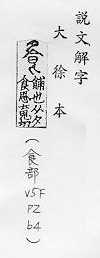 說文解字
大徐本
飧
餔也从夕
食思魂切
(食部
V5F
P2
b4)